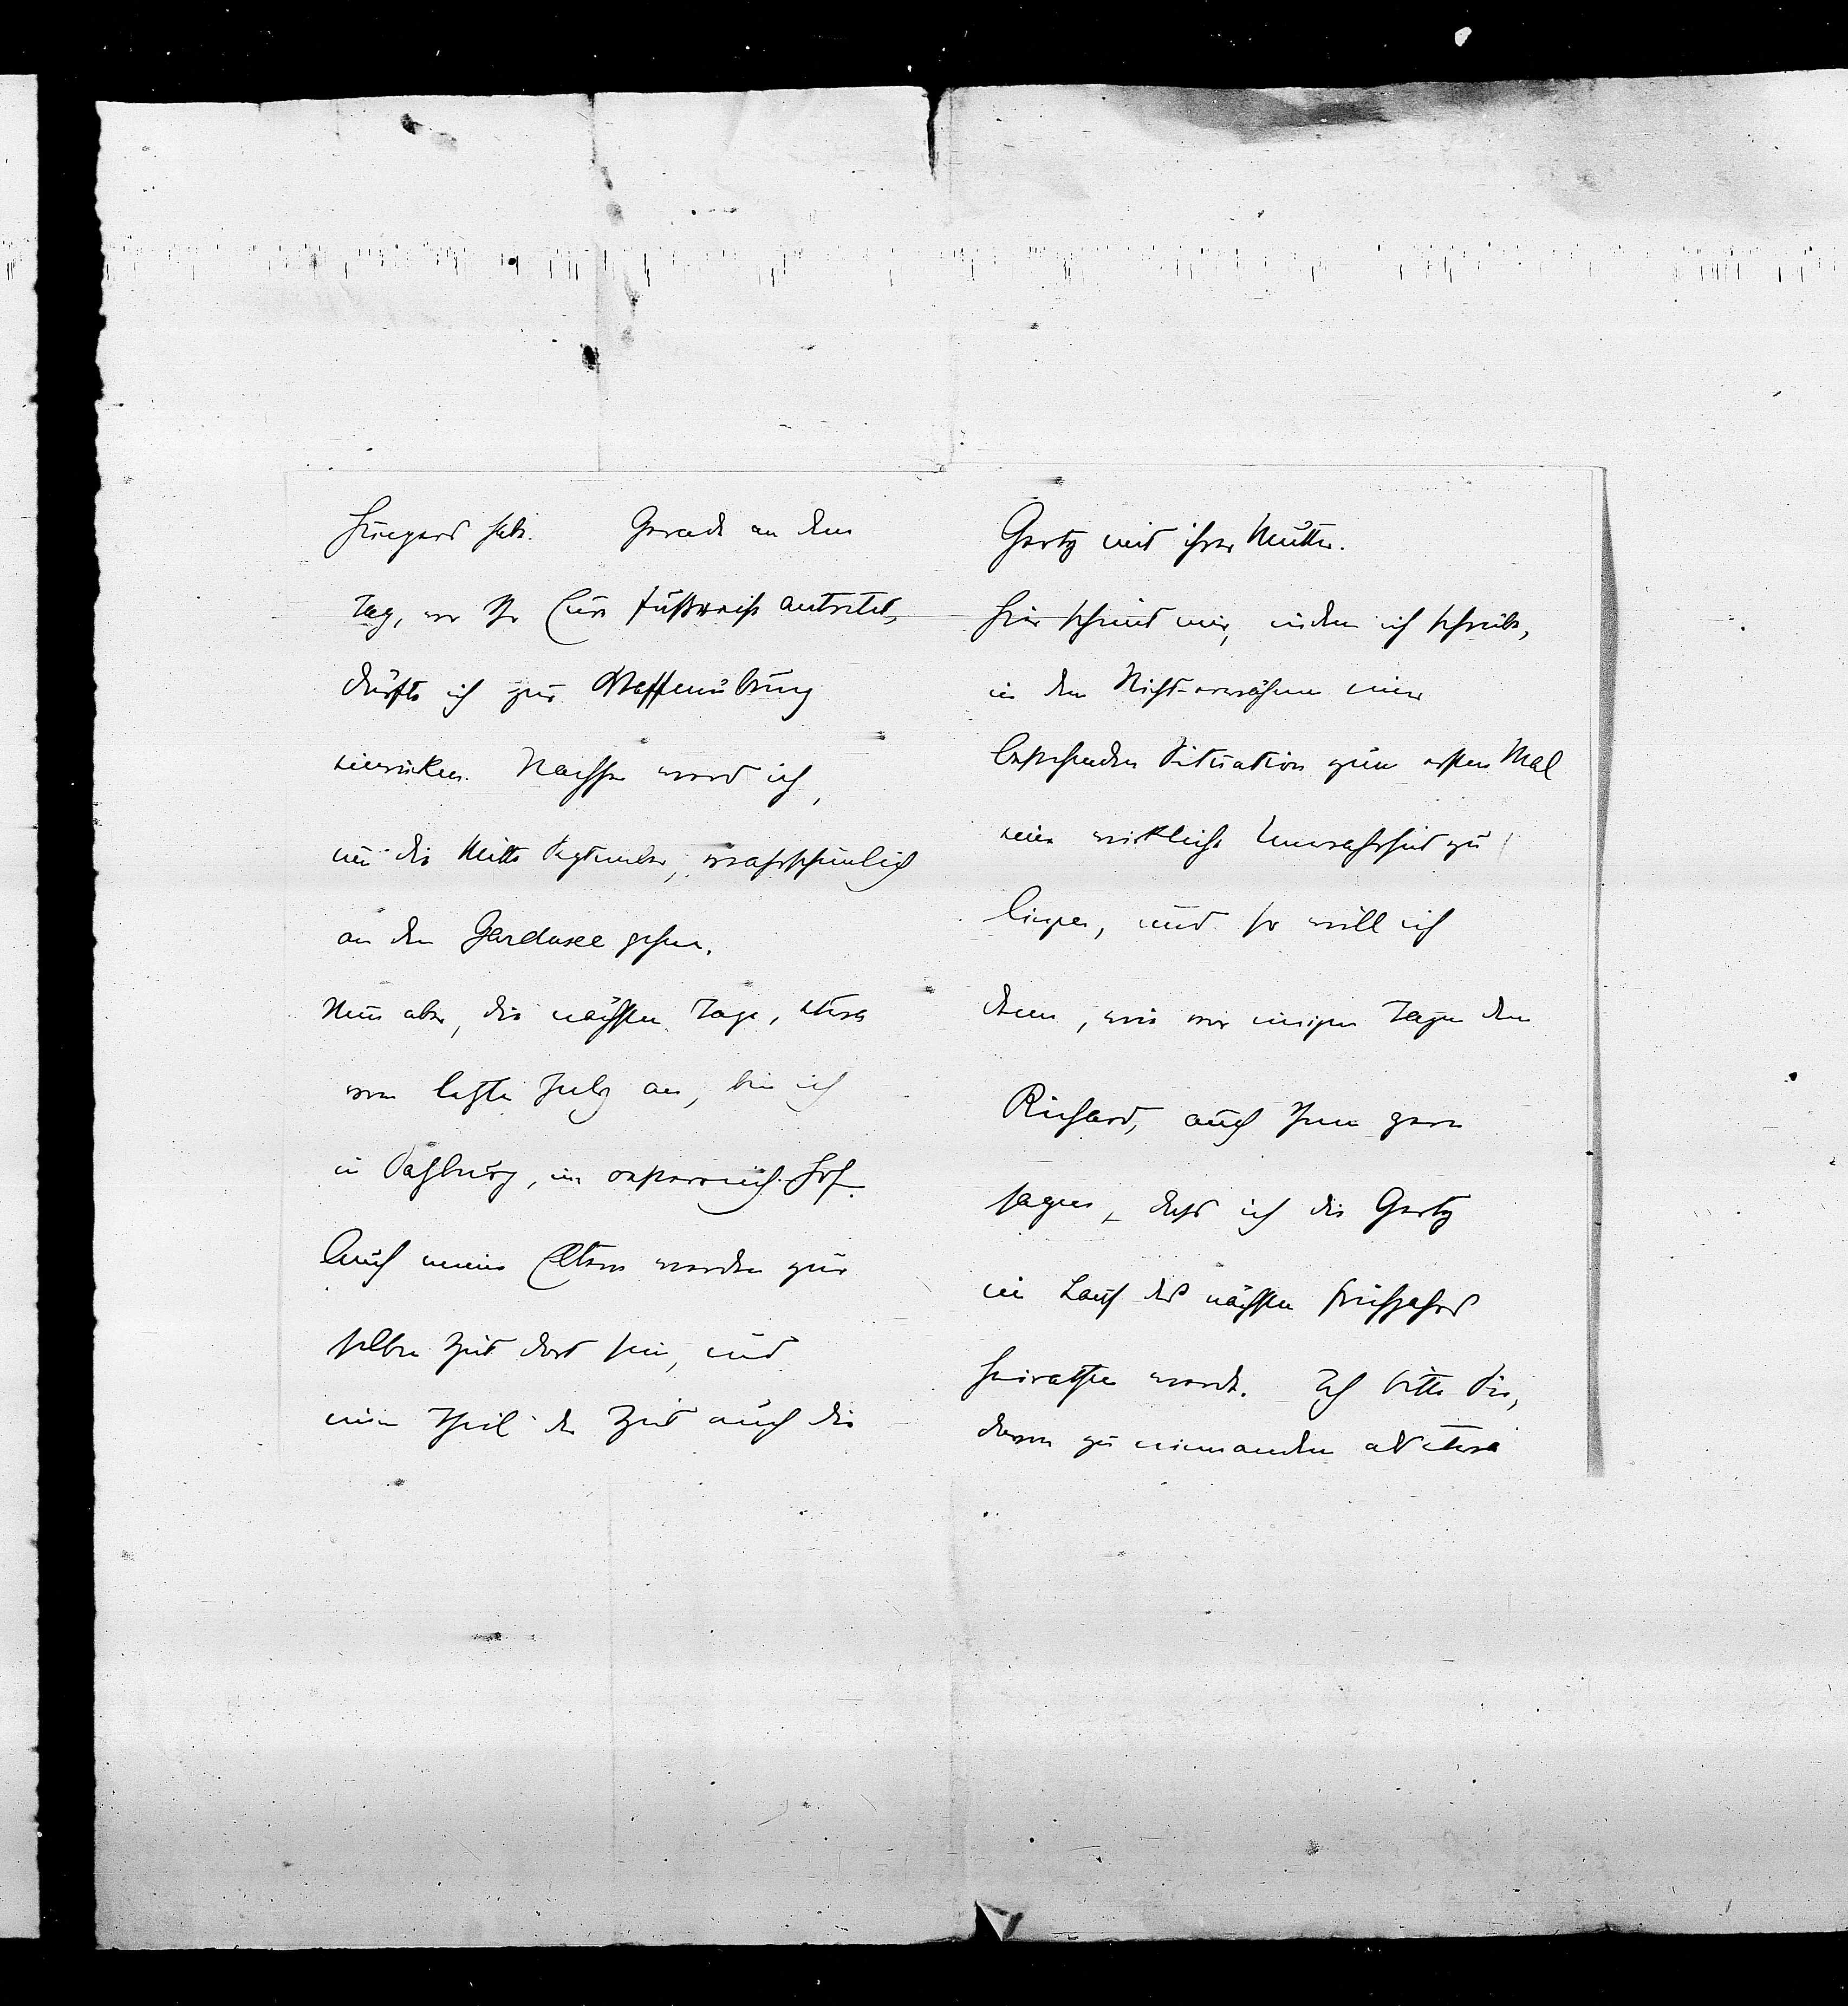 Hungerd habe. Gerade an dem
Tag, wo Ihr Eure Fußreise antretet,
dürfte ich zur Waffenübung
einrücken. Nachher werd ich,
um die Mitte September, wahrscheinlich
an den Gardasee gehen.
Nun aber, die nächsten Tage, etwa
vom letzten July an, bin ich
in Salzburg, im oesterreich. Hof.
Auch meine Eltern werden zur
selben Zeit dort sein, und
einen Theil der Zeit auch die
Gerty mit ihrer Mutter.
Hier scheint mir, indem ich schreibe,
in dem Nicht-erwähnen einer
bestehenden Situation zum ersten Mal
eine wirkliche Unwahrheit zu
liegen, und so will ich
denn, wie vor einigen Tagen dem
Richard, auch Ihnen gern
sagen, dass ich die Gerty
im Lauf des nächsten Frühjahrs
heirathen werde. Ich bitte Sie,
davon zu niemandem als etwa